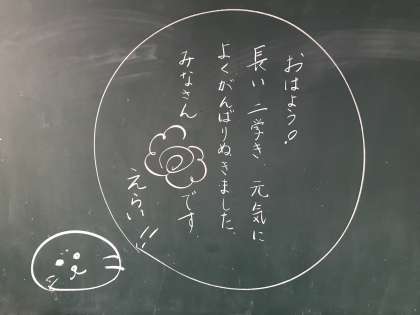 おはよう!
長い 二学き 元気に
よくがんばりぬきました。
みなさん です
えらい!!